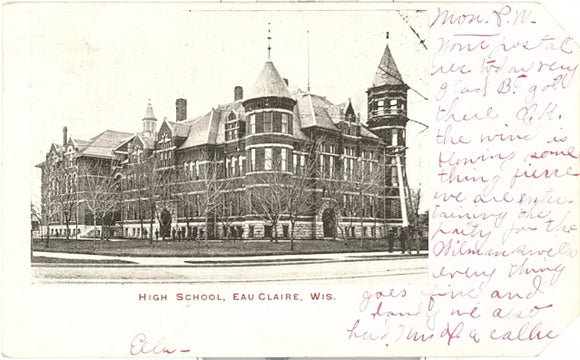 Mon. P.M.
Your postal
rec. today very
glad B. got
there O.K.
the wind is
blowing some
thing fierce
we are enter
taining the
party for the
every thing
goes fine and
dandy we also
had of a
HIGH SCHOOL, EAU CLAIRE, WIS.